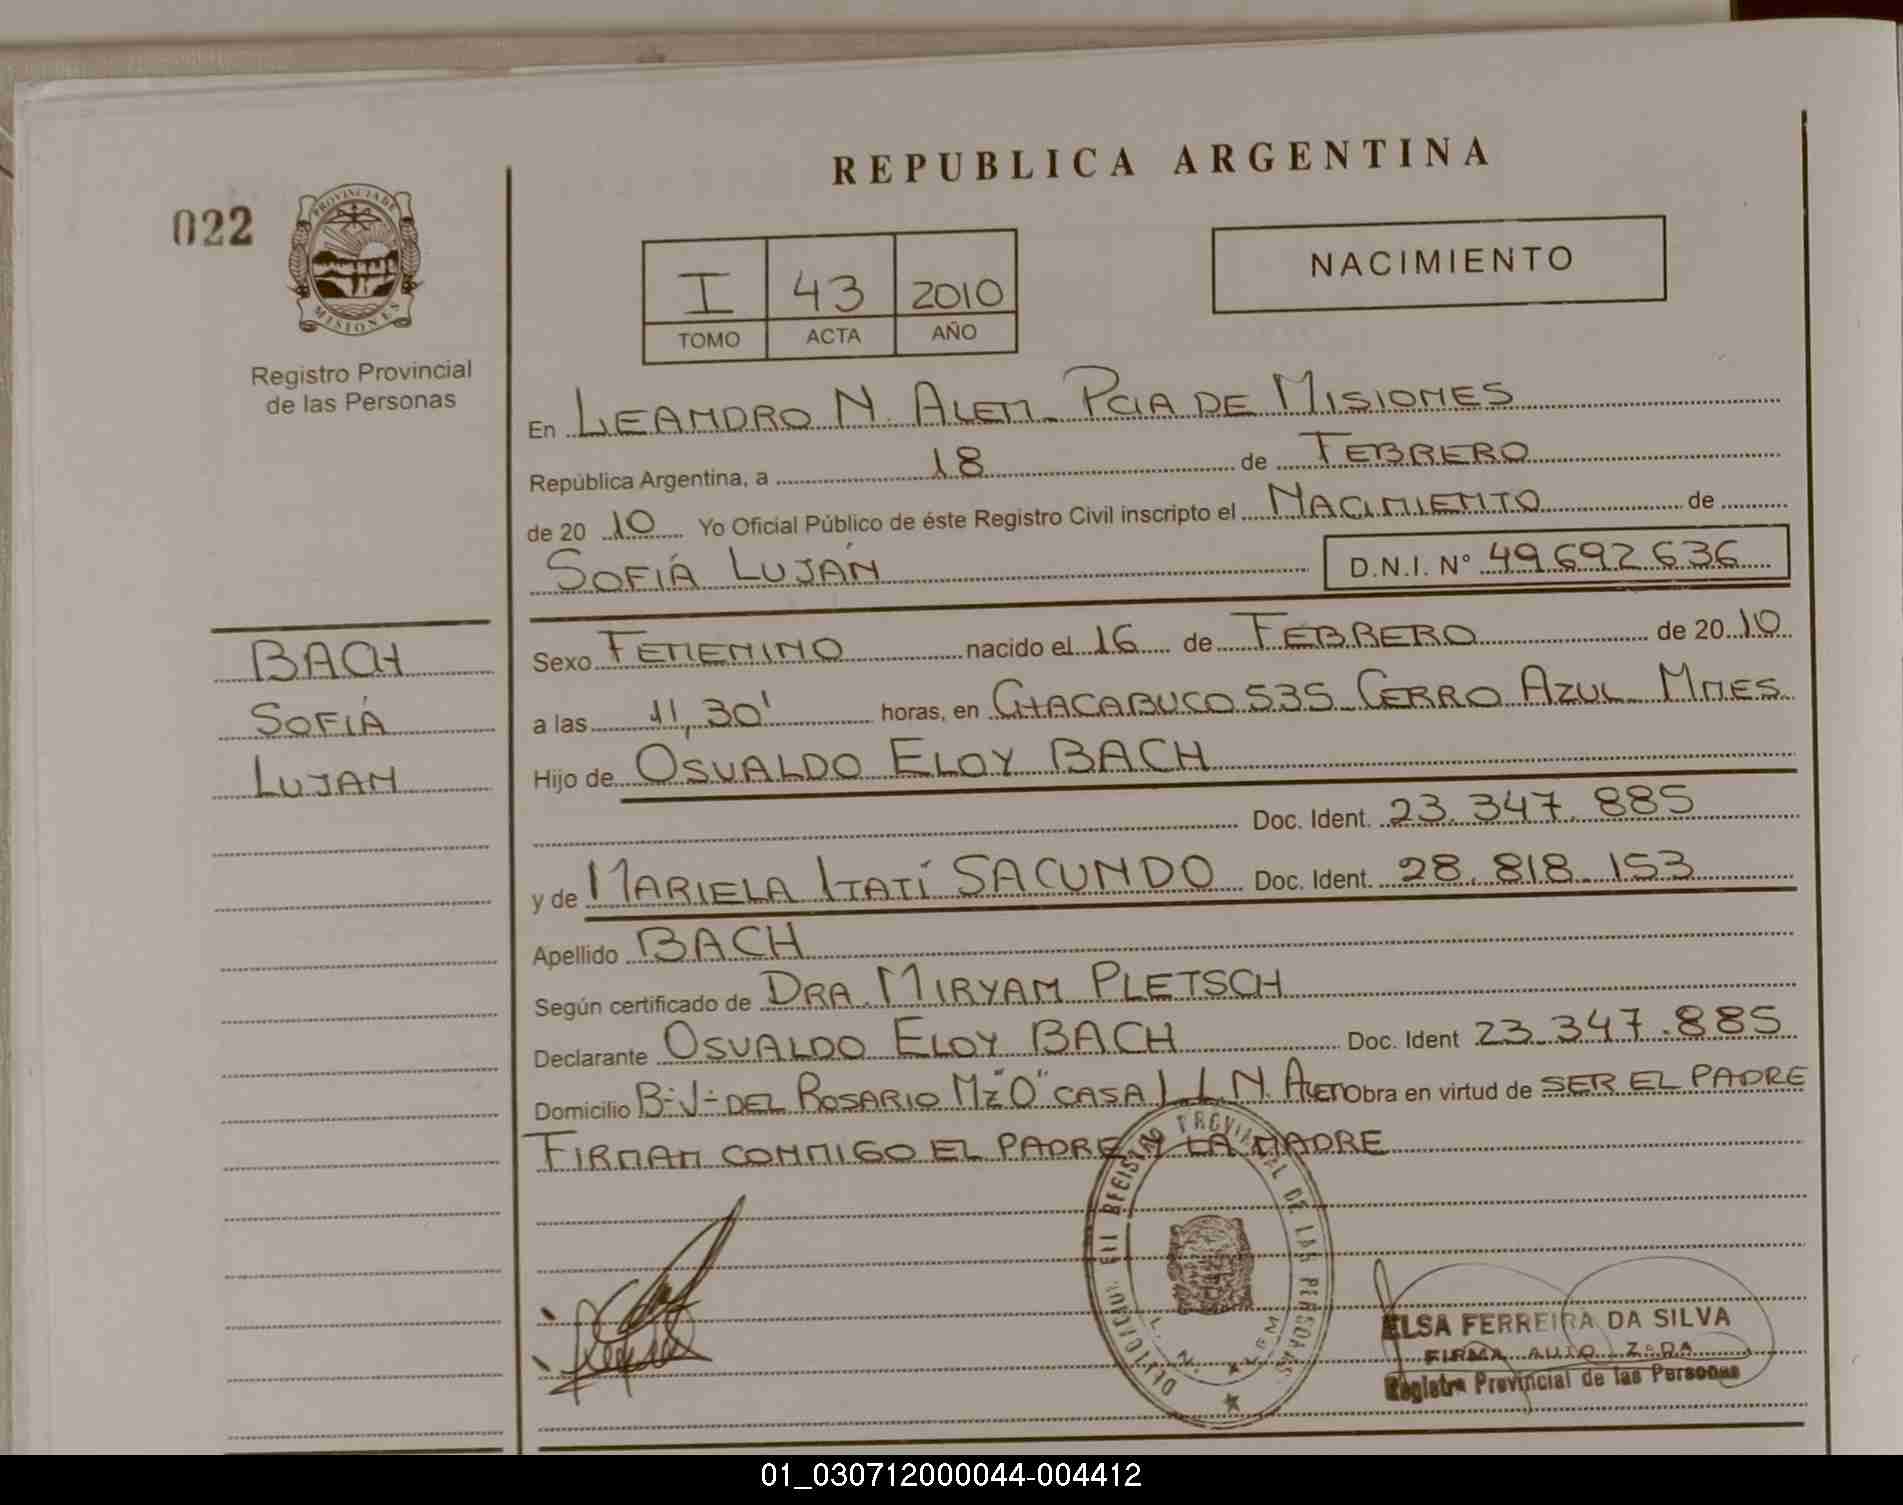 REPUBLICA ARGENTINA
022
PROVINCIA DE
MISIONES
Registro Provincial
de las Personas
I 43 2010
TOMO ACTA AÑO
NACIMIENTO
En LEANDRO N. ALEM - PCIA DE MISIONES
República Argentina, a 18 de FEBRERO
de 20 10 Yo Oficial Público de éste Registro Civil inscripto el NACIMIENTO de
SOFIÁ LUJÁN D.N.I. N° 49.692.636
Sexo FEMENINO nacido el 16 de FEBRERO de 20 10
a las 11,30' horas, en CHACABUCO 535 CERRO AZUL - MNES.
Hijo de OSVALDO ELOY BACH
Doc. Ident. 23.347.885
y de MARIELA ITATÍ SACUNDO Doc. Ident. 28.818.153
Apellido BACH
Según certificado de DRA. MIRYAM PLETSCH
Declarante OSVALDO ELOY BACH Doc. Ident 23.347.885
Domicilio B-V- DEL ROSARIO Mz "O" CASA 1 L.N. ALEM Obra en virtud de SER EL PADRE
FIRMAN CONMIGO EL PADRE Y LA MADRE
BACH
SOFIÁ
LUJAN
REGISTRO PROVINCIAL DE LAS PERSONAS
L. N. ALEM
ELSA FERREIRA DA SILVA
FIRMA AUTORIZADA
Registro Provincial de las Personas
01_030712000044-004412